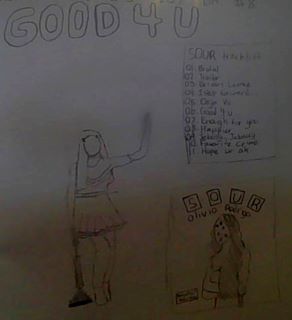 GOOD 4 U
SOUR tracklist
01. Brutal
02. Traitor
03. Drivers License
04. Step forward
05. Deja Vu
06. Good 4 u
07. Enough for you
08. Happier
09. Jealousy, Jealousy
10. Favorite Crime
11. Hope ur ok
SOUR
Olivia Rodrigo